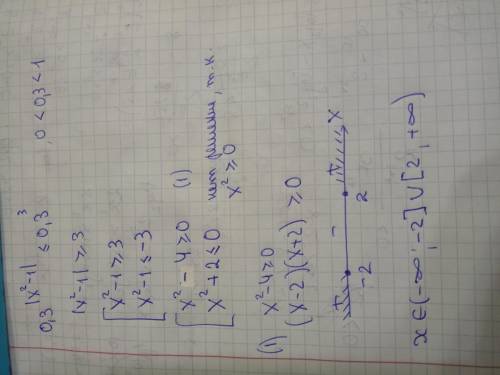 0,3^|x²-1| ≤ 0,3³ , 0 < 0,3 < 1
|x²-1| ≥ 3
[ x²-1 ≥ 3
x²-1 ≤ -3
[ x² - 4 ≥ 0 (1)
x² + 2 ≤ 0 нет решение, т.к.
x² ≥ 0
(1) x²-4 ≥ 0
(x-2)(x+2) ≥ 0
+ - + x
-2 2
x ∈ (-∞; -2] ∪ [2; +∞)